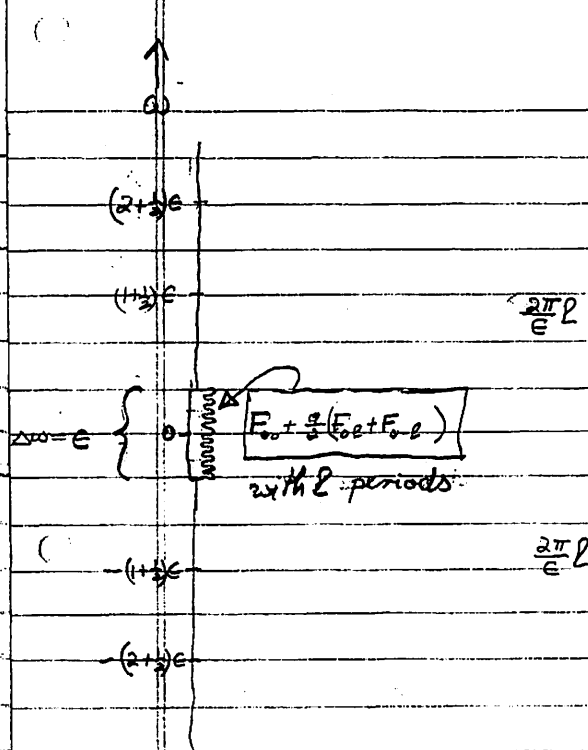 ∞
(2+½)ϵ
(1+½)ϵ
2π/ϵ ℓ
Δω=ϵ { 0 F₀₀ + a/2 (F₀ℓ + F₀₋ℓ)
with ℓ periods
2π/ϵ ℓ
-(1+½)ϵ
-(2+½)ϵ